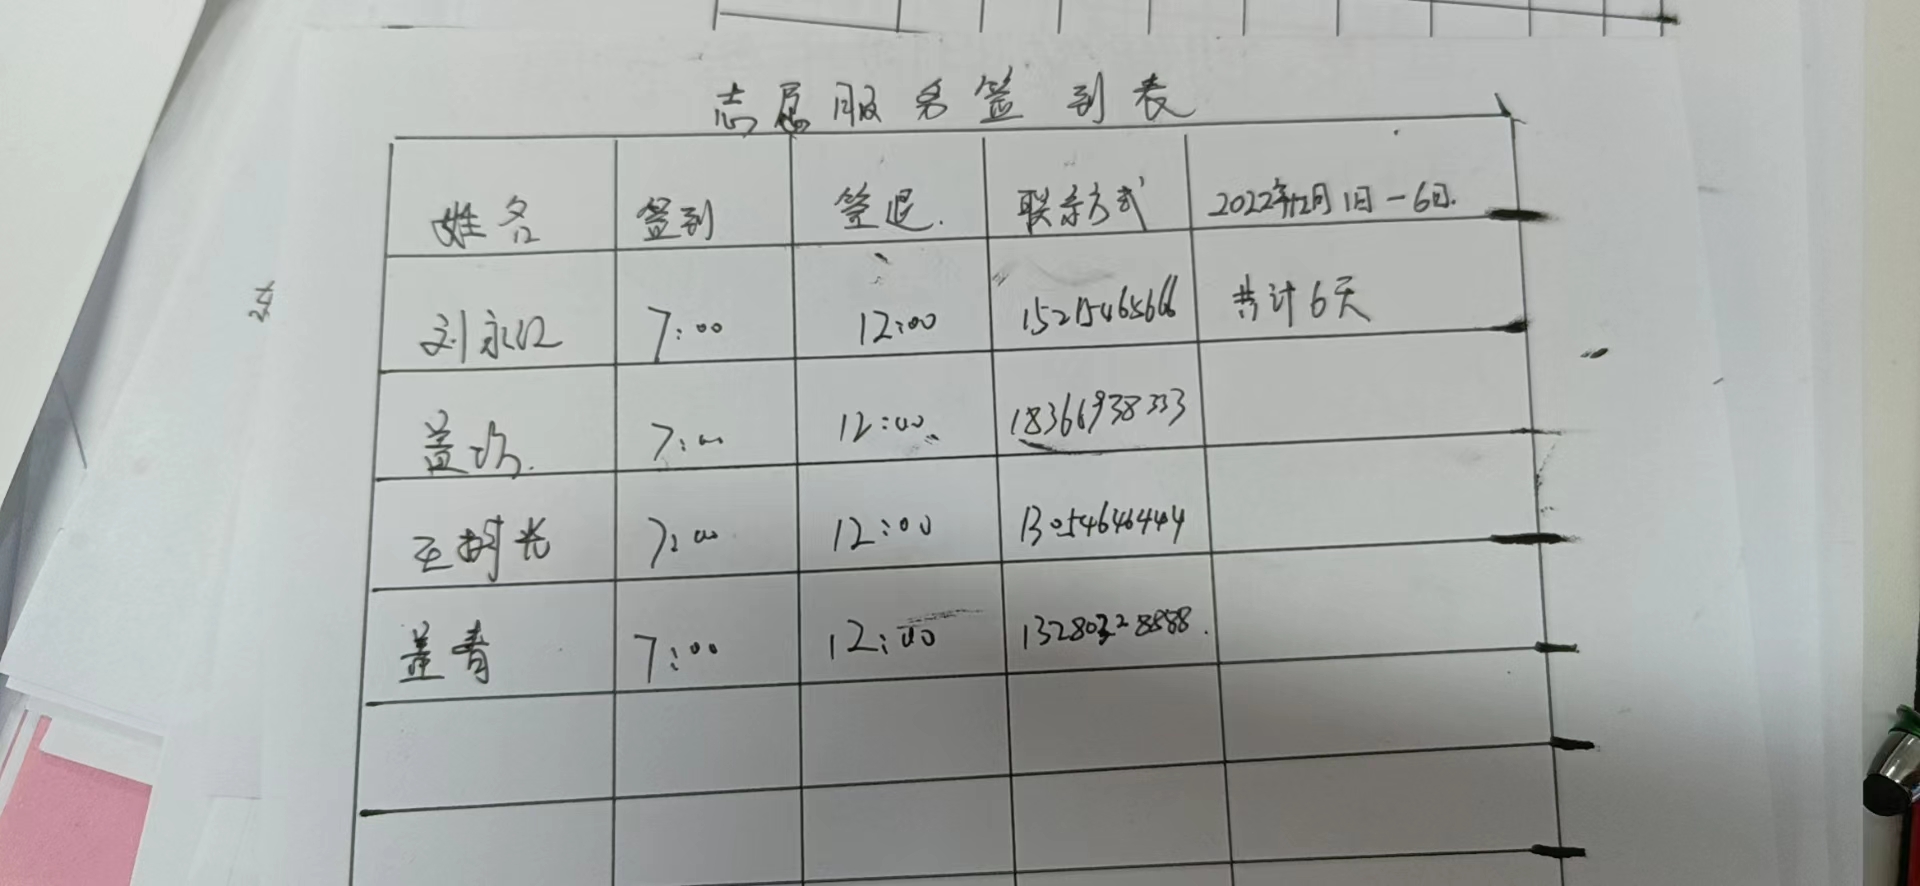 志愿服务签到表
姓名 签到 签退. 联系方式 2022年12月1日-6日.
刘永红 7:00 12:00 15215465666 共计6天
盖 7:00 12:00 18366938333
王树长 7:00 12:00 13054646444
盖青 7:00 12:00 13280328888.